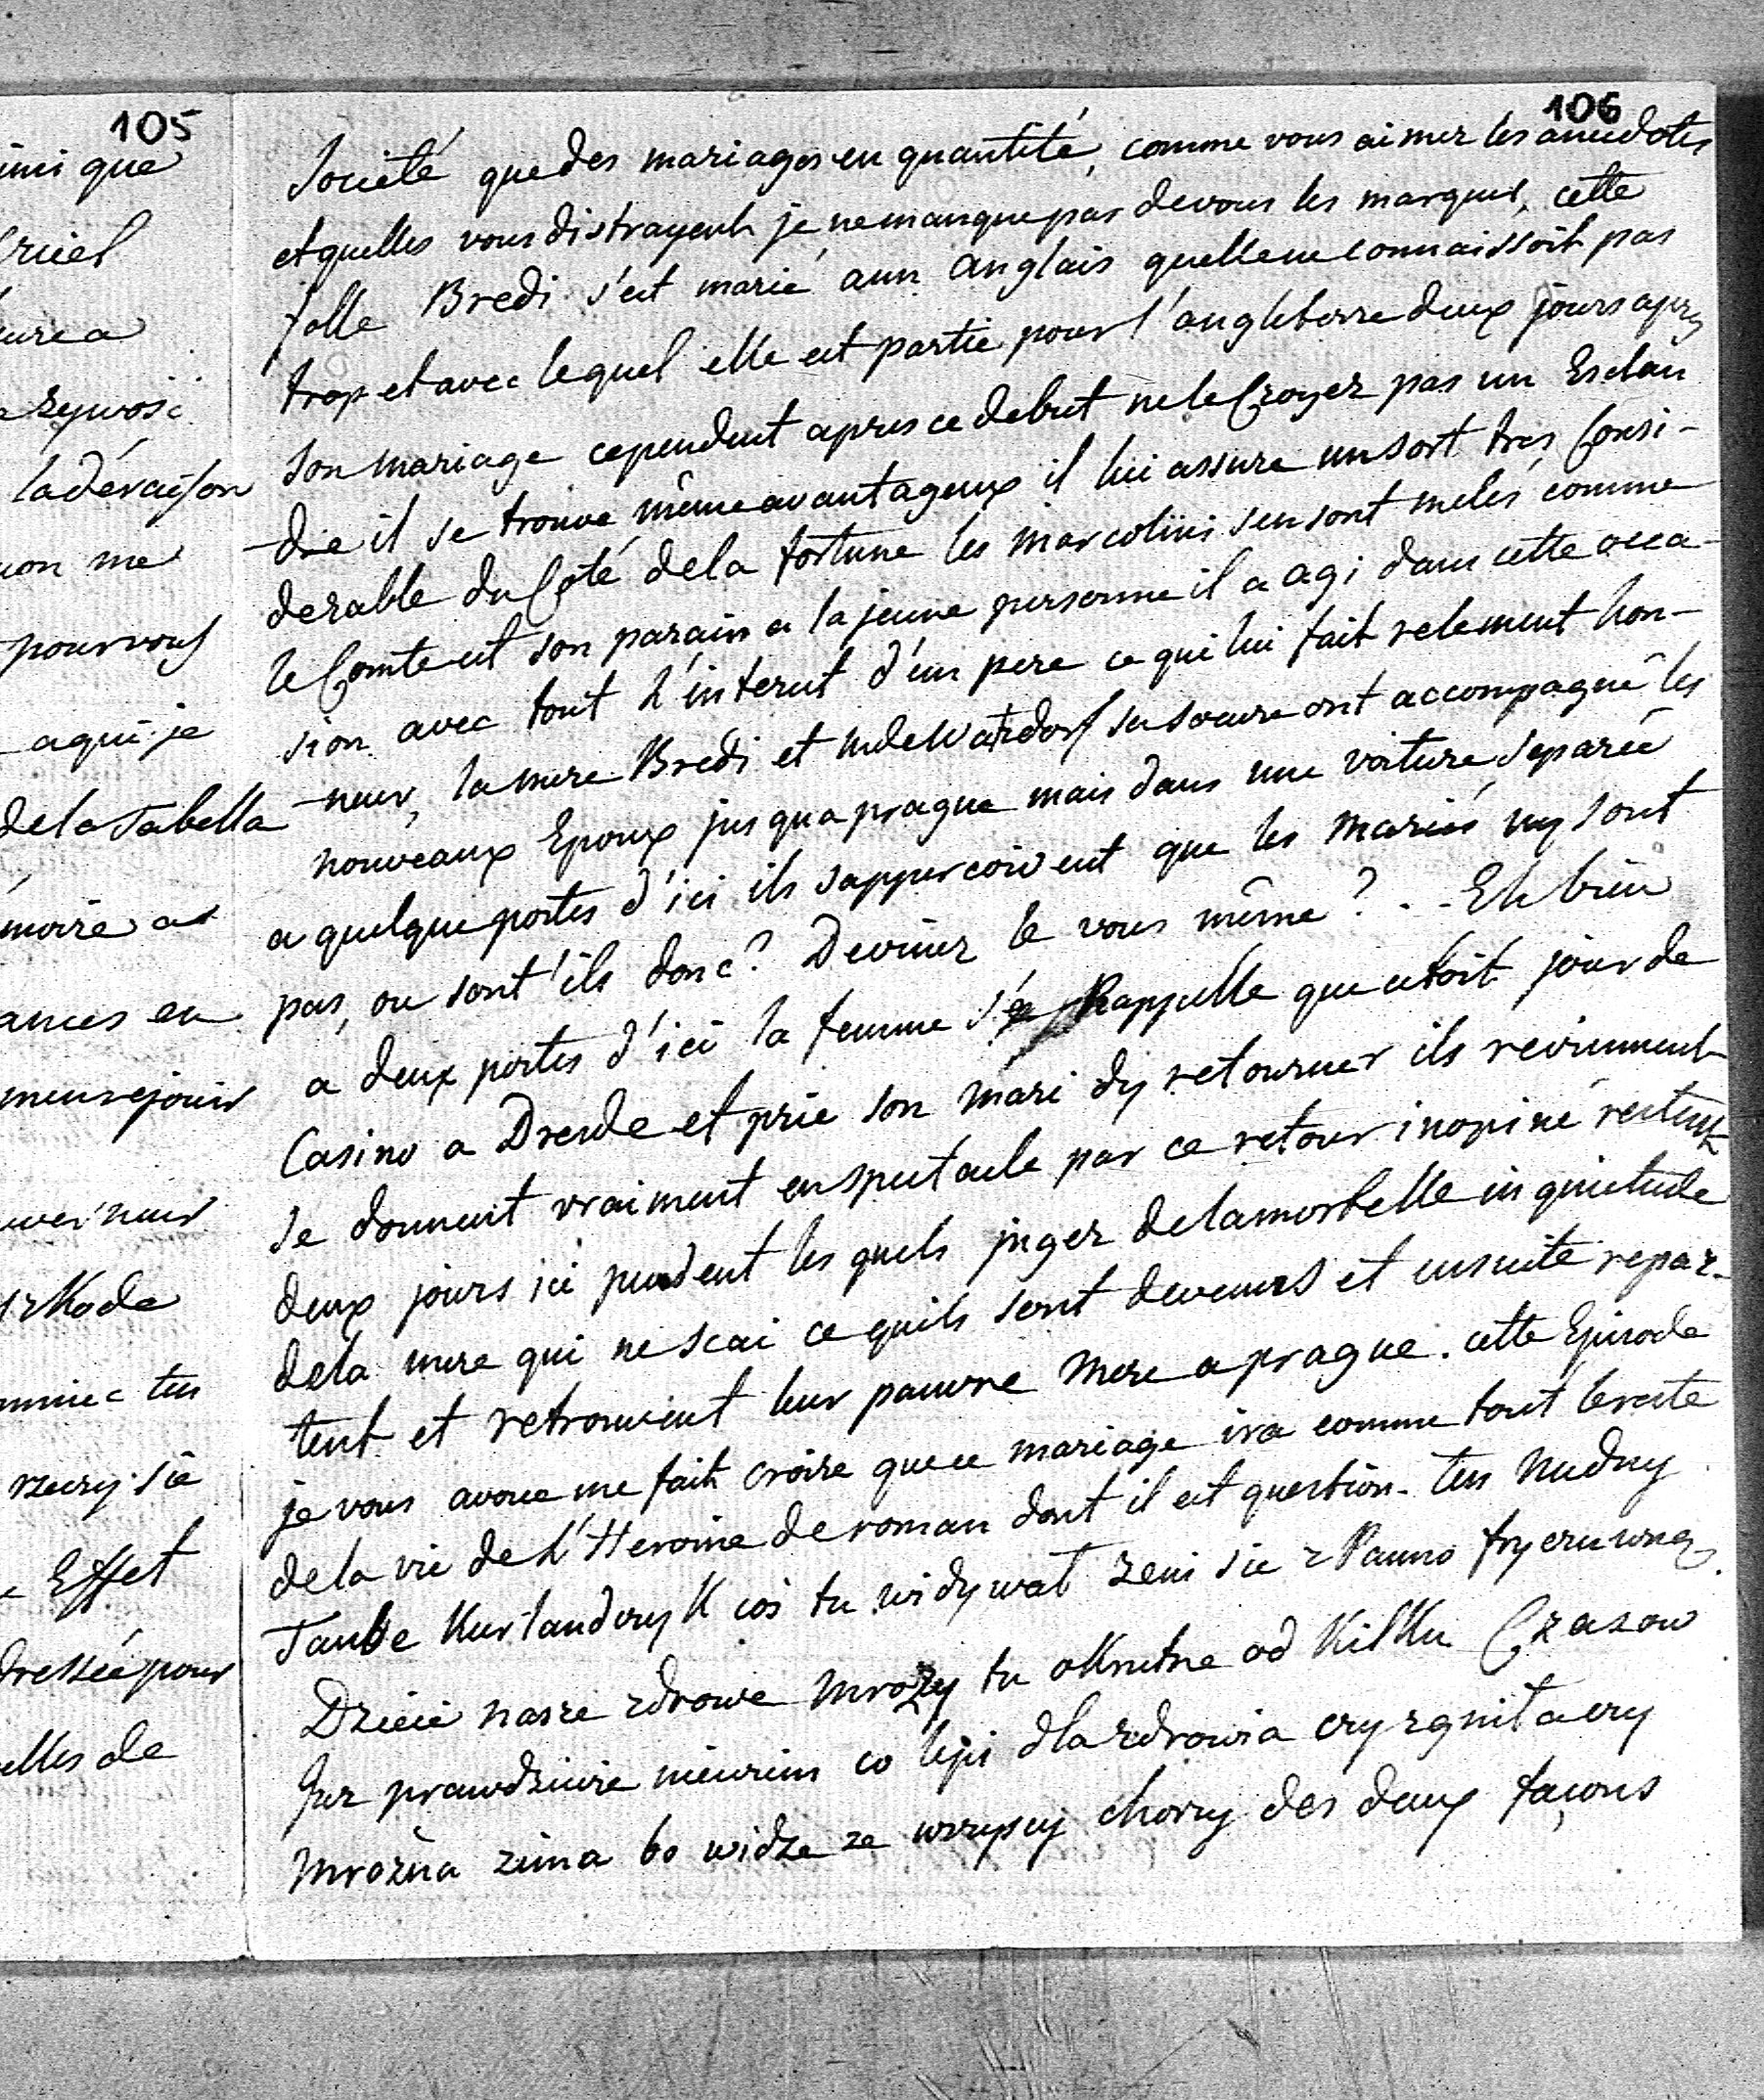 105
imi que
criel
eure a
rzywość
la déraison
non me
pour vous
a qui je
de la Tabella
moire a
ances en
meurejouir
uver nuir
rzkode
mniec ten
rzeczy sie
e Effet
dressée pour
elles de
106
Societé que des mariages en quantité, comme vous aimez les anecdotes
et quelles vous distrayent je ne manque pas de vous les marquer, cette
folle Bredi s'est marié a un Anglais quelle ne connaissoit pas
trop et avec lequel elle est partie pour l'angleterre deux jours apres
son mariage cependent apres ce debut ne le Croyez pas un Esclan
dre il se trouve même avantageux il lui assure un sort tres Consi-
derable du Coté de la fortune les marcolini s'en sont melés comme
le Comte est son parain a la jeune personne il a agi dans cette occa-
sion avec tout l'interet d'un pere ce qui lui fait relement hon-
neur, la mere Bredi et mde Watzdorf sa soeure ont accompagné les
nouveaux Epoux jusqu a prague mais dans une voiture separée
a quelque postes d'ici ils sappercoivent que les Mariés ny sont
pas, ou sont'ils donc? Devinez le vous même? .. Eh bien
a deux postes d'ici la femme s'e Rappelle que cetoit jour de
Casino a Dresde et prie son mari dy retourner ils reviennent
se donnent vraiment en spectacle par ce retour inopiné restent
deux jours ici pendent les quels jugez de la mortelle inquietude
de la mere qui ne scai ce quils sont devenus et ensuite repar-
tent et retrouvent leur pauvre Mere a prague. cette Episode
je vous avoue me fait croire que ce mariage ira comme tout le reste
de la vie de L'Heroine de roman dont il est question. ten nudny
Taube Kurlandczyk coś tu widywał zeni sie z Panno fryczuwnę.
Dzieci nasze zdrowe mrozy tu okrutne od Kilku Czasow
Juz prawdziwie niewiem co lepi dla zdrowia czy zgniła czy
Mroźna zima bo widze ze wszyscy chorzy des deux façons